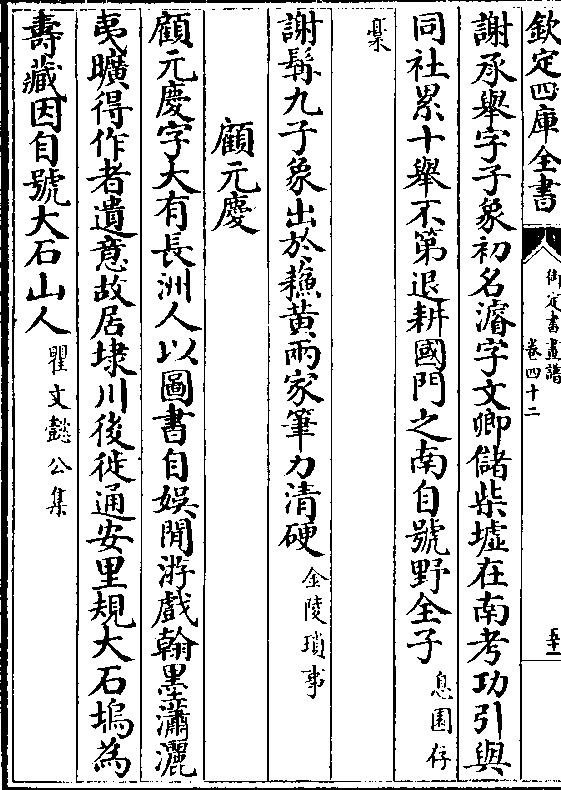 欽定四庫全書
御定書畫譜
卷四十二
五十一
謝承舉字子象初名濬字文卿儲柴墟在南考功引與
同社累十舉不第退耕國門之南自號野全子息園存
稾
謝髯九子象出於蘓黄兩家筆力清硬金陵瑣事
顧元慶
顧元慶字大有長洲人以圖書自娯閒游戲翰墨瀟灑
夷曠得作者遺意故居埭川後徙通安里規大石塢為
壽藏因自號大石山人瞿文懿公集